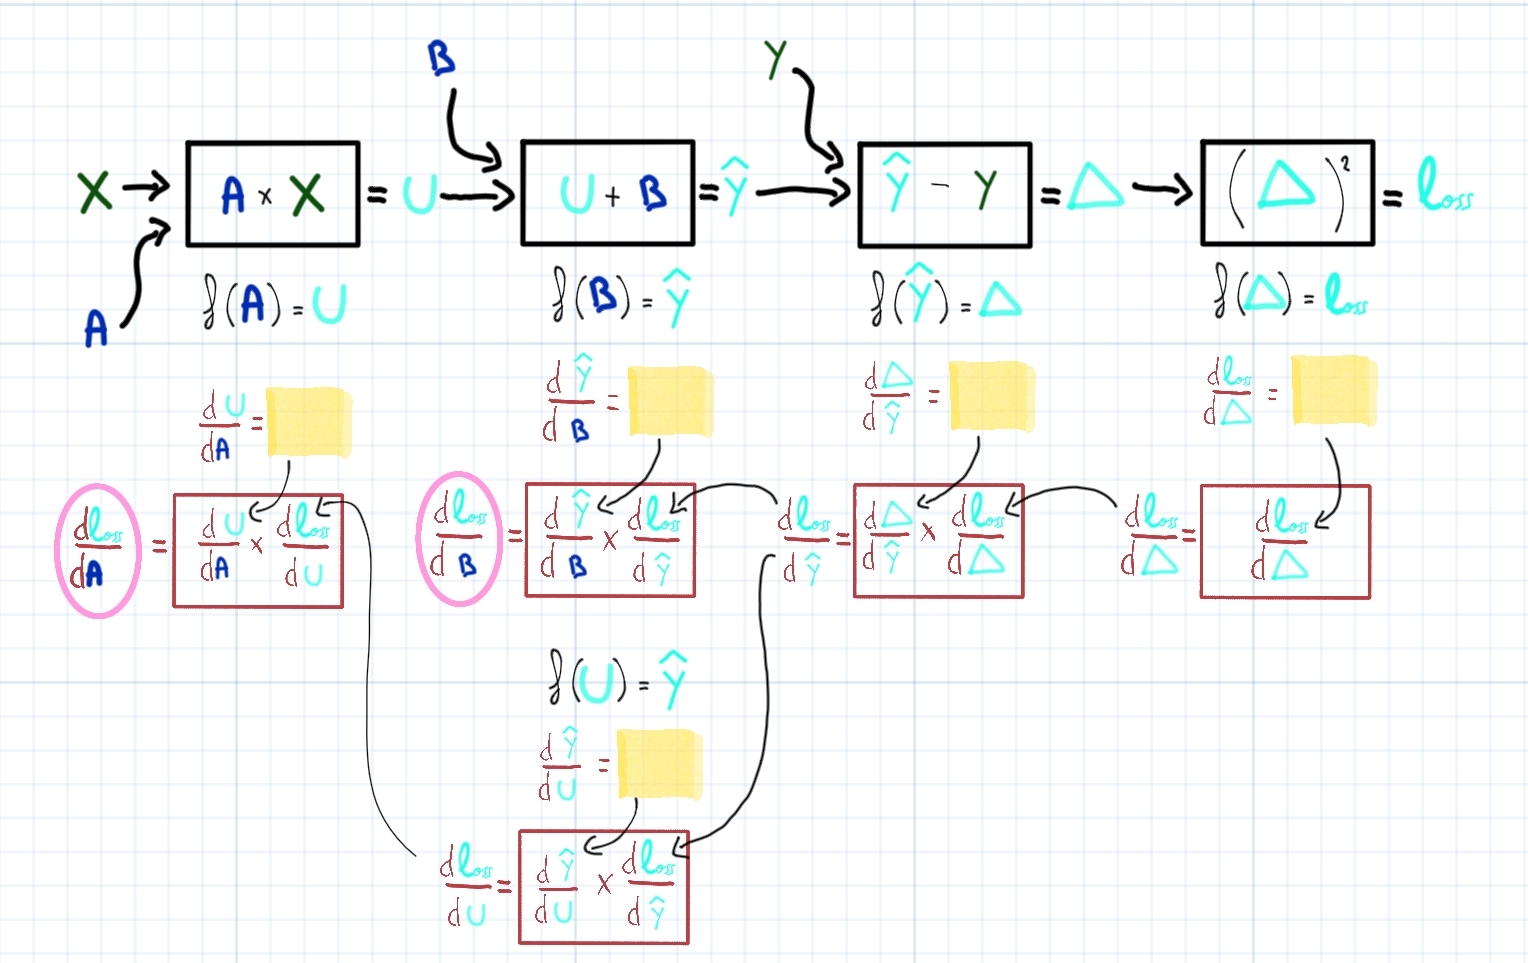 B Y
X A × X = U U + B = Ŷ Ŷ - Y = Δ (Δ)² = loss
A
f(A) = U f(B) = Ŷ f(Ŷ) = Δ f(Δ) = loss
dU/dA = dŶ/dB = dΔ/dŶ = dloss/dΔ =
dloss/dA = dU/dA × dloss/dU dloss/dB = dŶ/dB × dloss/dŶ dloss/dŶ = dΔ/dŶ × dloss/dΔ dloss/dΔ = dloss/dΔ
f(U) = Ŷ
dŶ/dU =
dloss/dU = dŶ/dU × dloss/dŶ